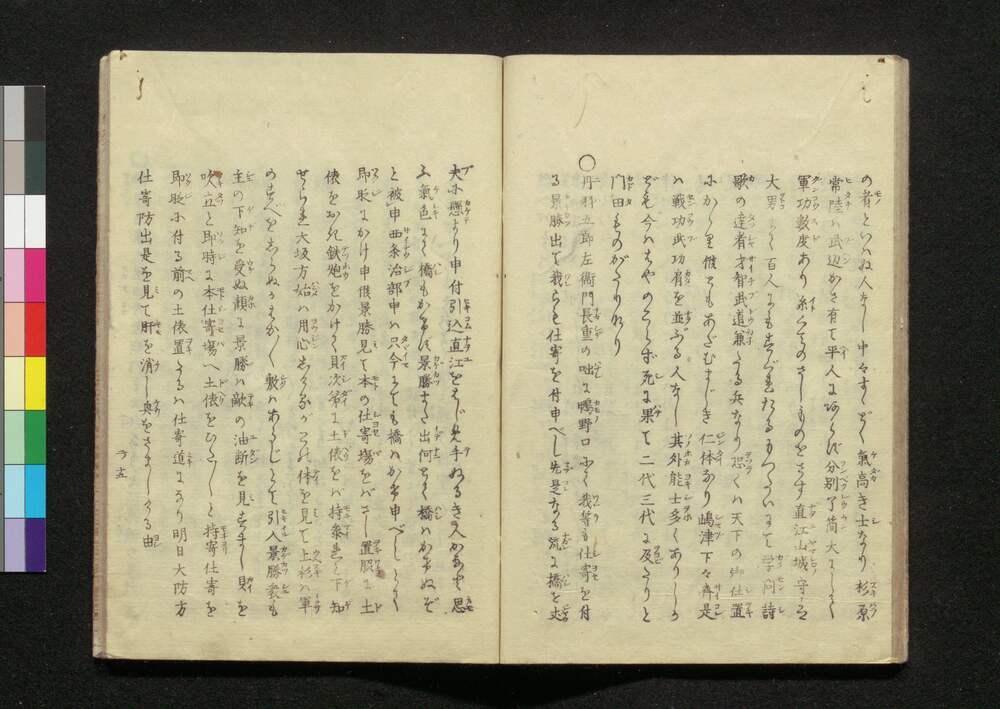 の者といハぬ人なし中々すくどく氣高き士なり杉原
常陸ハ武辺かさ有て平人にあらず分別了簡大にして
軍功数度ありくてのさしものをさす直江山城守ハ
大男にて百人にもすぐれたるもつたいにて学問詩
歌の達者才智武道兼たる兵なり恐くハ天下の御仕置
にかゝり候てもあだむまじき仁体なり嶋津下々齊是
ハ戦功武功肩を並ぶる人なし其外能士多くありしか
ども今ハはやのこらず死に果て二代三代に及たりと
門田ものがたりあり
○丹羽五郎左衛門長重の咄に鴫野口にて我等も仕寄を付
る景勝出て我らも仕寄を付申べし先是なる流に橋を
夫に懸より申付引込直江をはじめ手ぬるき人かなと思
ふ氣色にて橋もかけず景勝また出何とて橋ハかけぬぞ
と被申西条治部申ハ只今にても橋ハかけ申べしとて
即時にかけ申候景勝見て本の仕寄場をバさし置脇に土
俵をおき鉄炮をかけて貝次第に土俵をバ持参と下知
せらる大坂方始ハ用心しけるがこの体を見て上杉の軍
のすべをしらぬかまが〳〵敷ハあるじとて引入景勝衆も
主の下知を受ぬ顔に景勝ハ敵の油断を見すまし則を
吹立と即時に本仕寄場へ土俵をひたひたと持寄仕寄を
即時に付る前の土俵置たるハ仕寄道になり明日大防方
仕寄防出是を見て肝を消し興をさましける由
ヲ五